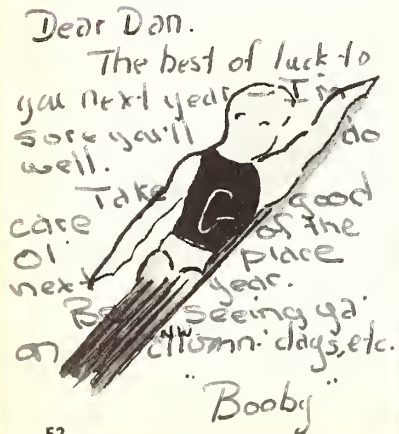 Dear Dan.
The best of luck to
you next year – I'm
sure you'll do
well.
Take good
care of the
ol' place
next year.
Be seeing ya'
on alumni days, etc.
"Booby"
C
52